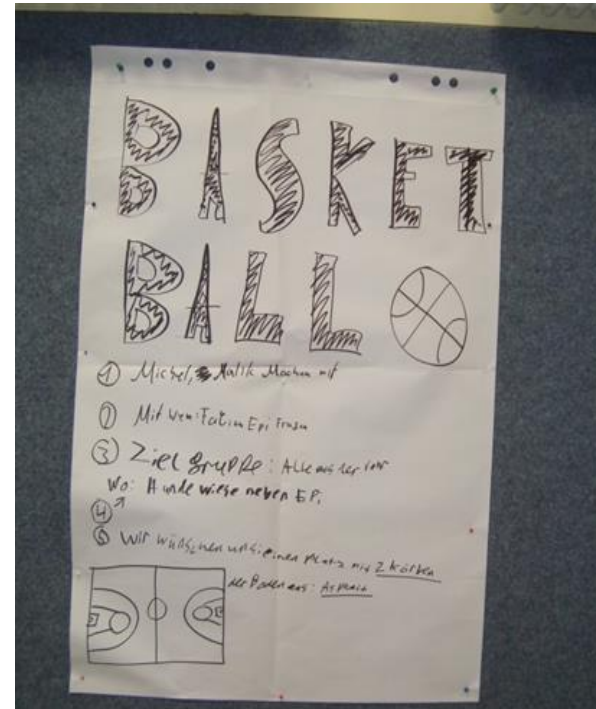 BASKET
BALL
① Michel, Malik Machen mit
② Mit wem: Fatim Epi
③ Zielgruppe: Alle aus der
Wo: Hundewiese neben EPi
④
⑤ Wir wünschen uns einen Platz mit 2 Körben
der Boden aus: